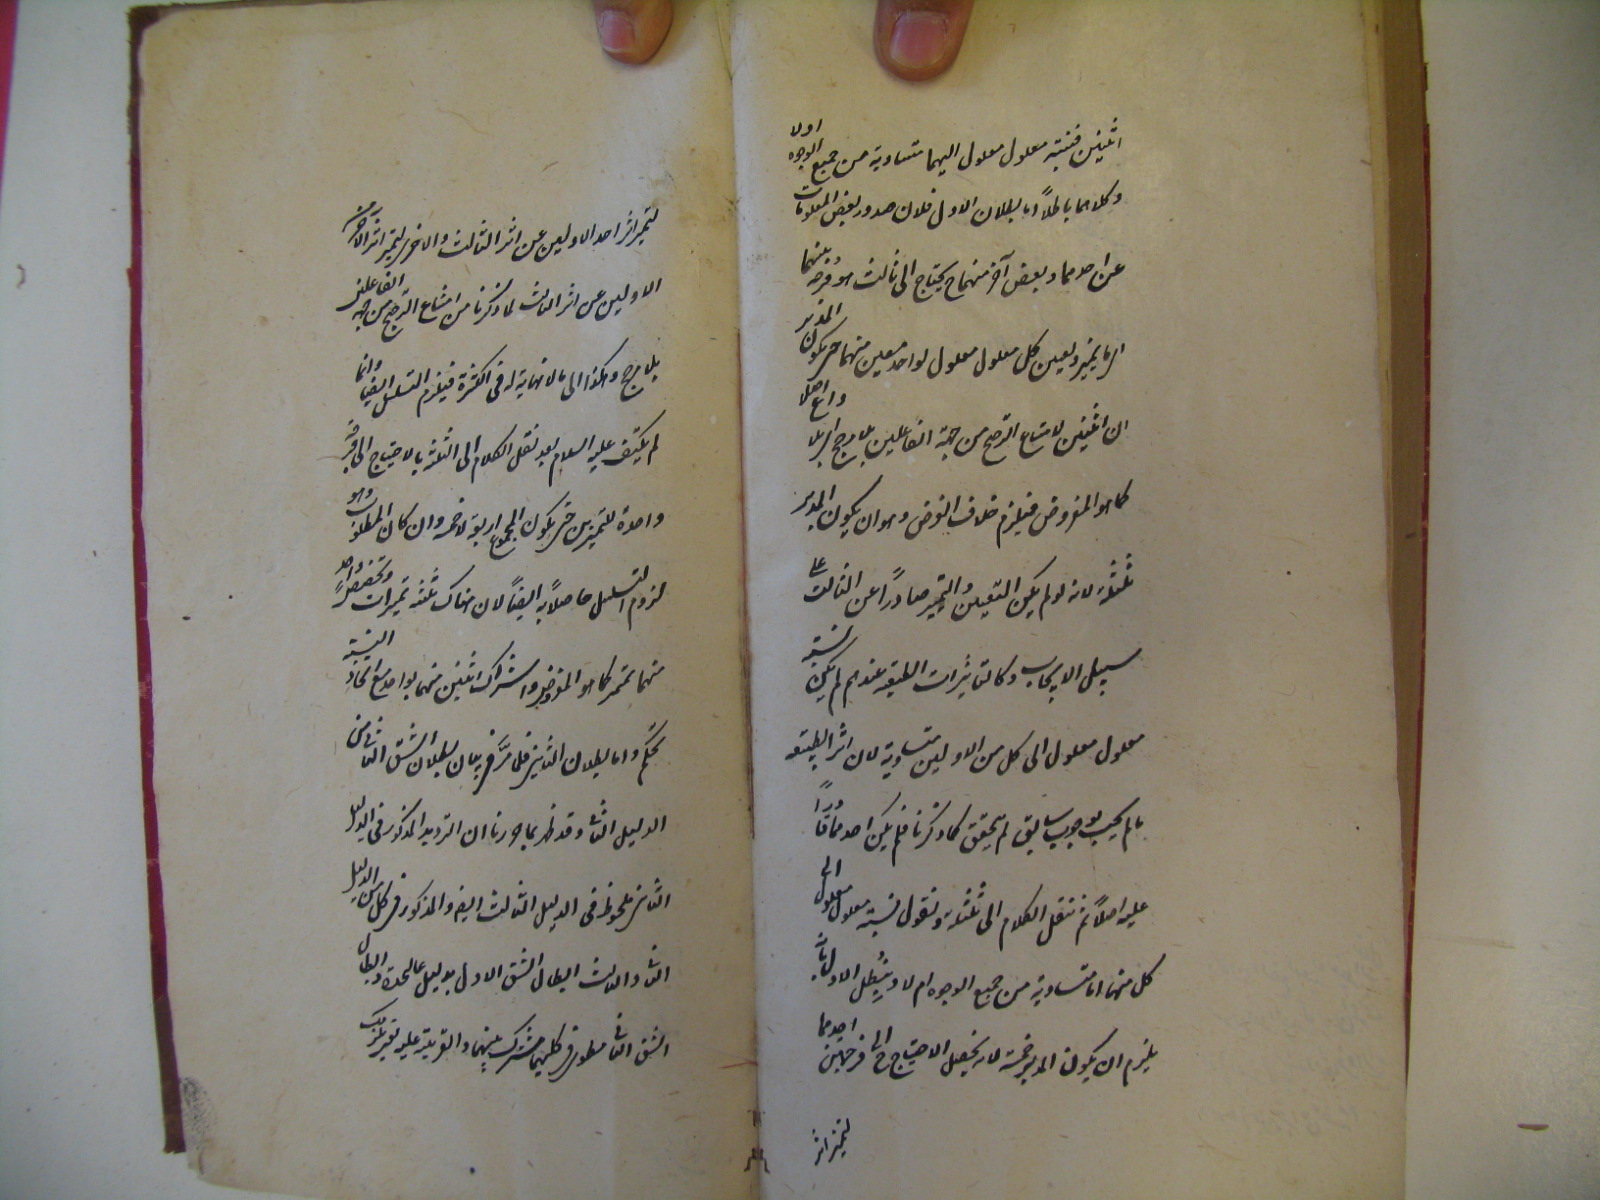 اثنين فنسبة معلول معلول اليهما متساوية من جميع الوجوه اولا
وكلاهما باطلاً اما بطلان الاول فلان صدور بعض المعلولات
عن احدهما وبعض آخر منهما ح يحتاج الى ثالث هو فرجة بينهما
اى ما يميز ويعين كل معلول معلول لواحد معين منهما حتى يكون المدبر
ان اثنين لامتناع الترجيح من جهة الفاعلين بلا مرجح اى بلا داع اصلا
كما هو المفروض فيلزم خلاف الفرض وهو ان يكون المدبر
ثلثة لانه لو لم يكن التعيين والتميز صادرًا عن الثالث على
سبيل الايجاب وكالتاثيرات الطبيعية عندهم لم يكن نسبة
معلول معلول الى كل من الاولين متساوية لان اثر الطبيعة
ما لم يجب بوجوب سابق لم يتحقق كما ذكرنا فلم يكن احدهما قادرًا
عليه اصلاً ثم ننقل الكلام الى ثلثة ونقول نسبة معلول معلول الى
كل منها اما متساوية من جميع الوجوه ام لا ويبطل الاول بانه
يلزم ان يكون المدبر خمسة لانه يحصل الاحتياج ح الى فرجتين احدهما
لتميز اثر
لتميز اثر احد الاولين عن اثر الثالث والاخرى لتميز اثر الآخر من
الاولين عن اثر الثالث لما ذكرنا من امتناع الترجيح من جهة الفاعلين
بلا مرجح وهكذا الى ما لا نهاية له فى الكثرة فيلزم التسلسل ايضا وانما
لم يكتف عليه السلام بعد نقل الكلام الى الثلثة بالاحتياج الى فرجة
واحدة للتميزين حتى يكون المجموع اربعة لا خمسة وان كان المطلوب وهو
لزوم التسلسل حاصلاً به ايضاً لان هناك ثلثة تميزات وتخصيص واحد
منها بمميز كما هو المفروض واشتراك اثنين منها بواحد مع اتحاد النسبة
تحكم واما بطلان الثانى فلما مرّ فى بيان بطلان الشق الثانى من
الدليل الثانى وقد ظهر بما حررنا ان الترديد المذكور فى الدليل
الثانى ملحوظ فى الدليل الثالث ايضا والمذكور فى كل من الدليل
الثانى والثالث ابطال الشق الاول بدليل عليحدة وابطال
الشق الثانى مطوى فى كليهما مشترك بينهما والقرينة عليه